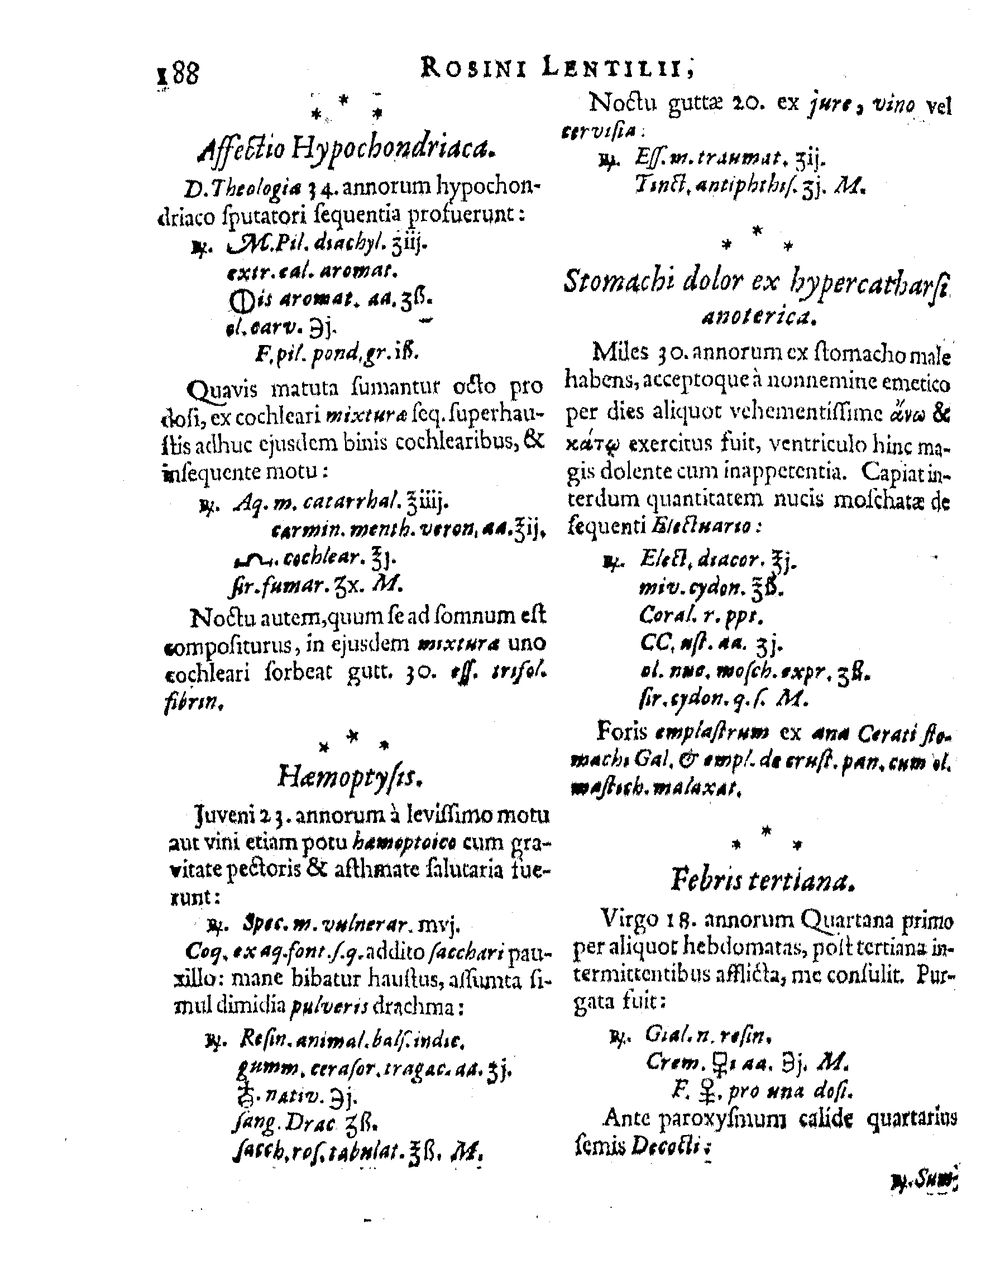 188 ROSINI LENTILII,
* * *
Affectio Hypochondriaca.
D. Theologia 34. annorum hypochon-
driaco ſputatori ſequentia profuerunt:
℞. M. Pil. diachyl. ʒiij.
extr. cal. aromat.
🜕is aromat. aa. ʒß.
ol. carv. ℈j.
F. pil. pond. gr. iß.
Quavis matuta ſumantur octo pro
doſi, ex cochleari mixturæ ſeq. ſuperhau-
ſtis adhuc ejusdem binis cochlearibus, &
inſequente motu:
℞. Aq. m. catarrhal. ℥iiij.
carmin. menth. veron. aa. ℥ij.
. cochlear. ℥j.
ſir. fumar. ʒx. M.
Noctu autem, quum ſe ad ſomnum eſt
compoſiturus, in ejusdem mixturæ uno
cochleari ſorbeat gutt. 30. eſſ. trifol.
fibrin.
* * *
Hæmoptyſis.
Juveni 23. annorum à leviſſimo motu
aut vini etiam potu hæmoptoico cum gra-
vitate pectoris & aſthmate ſalutaria fue-
runt:
℞. Spec. m. vulnerar. mvj.
Coq. ex aq. font. ſ. q. addito ſacchari pau-
xillo: mane bibatur hauſtus, aſſumta ſi-
mul dimidia pulveris drachma:
℞. Reſin. animal. balſ. indic.
gumm. ceraſor. tragac. aa. ʒj.
. nativ. ℈j.
ſang. Drac ʒß.
ſacch. roſ. tabulat. ℥ß. M.
Noctu guttæ 20. ex jure, vino vel
cerviſia:
℞. Eſſ. m. traumat. ʒij.
Tinct. antiphthiſ. ʒj. M.
* * *
Stomachi dolor ex hypercatharſi
anoterica.
Miles 30. annorum ex ſtomacho male
habens, acceptoque à nonnemine emetico
per dies aliquot vehementiſſime ἄνω &
κάτω exercitus fuit, ventriculo hinc ma-
gis dolente cum inappetentia. Capiat in-
terdum quantitatem nucis moſchatæ de
ſequenti Electuario:
℞. Elect. diacor. ℥j.
miv. cydon. ℥ß.
Coral. r. ppt.
CC. uſt. aa. ʒj.
ol. nuc. moſch. expr. ʒß.
ſir. cydon. q. ſ. M.
Foris emplaſtrum ex ana Cerati ſto-
machi Gal. & empl. de cruſt. pan. cum ol.
maſtich. malaxat.
* * *
Febris tertiana.
Virgo 18. annorum Quartana primo
per aliquot hebdomatas, poſt tertiana in-
termittentibus afflicta, me conſulit. Pur-
gata fuit:
℞. Gial. n. reſin.
Crem. 🜿i aa. ℈j. M.
F. . pro una doſi.
Ante paroxyſmum calide quartarius
ſemis Decocti:
℞. Sum-